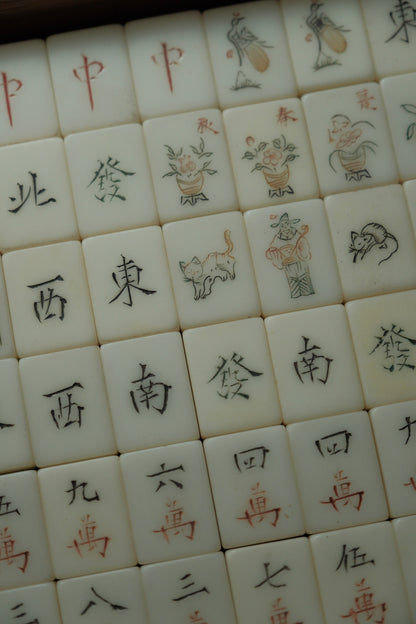 中 中 中 東
北 發 秋 春 夏
西 東
西 南 發 南 發
五萬 九萬 六萬 四萬 四萬 九
三 八 三 七 伍萬